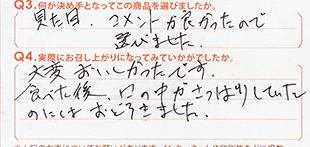 Q3.何が決め手となってこの商品を選びましたか。
見た目、コメントが良かったので
選びました。
Q4.実際にお召し上がりになってみていかがでしたか。
大変おいしかったです。
食べた後、口の中がさっぱりしていた
のにはおどろきました。